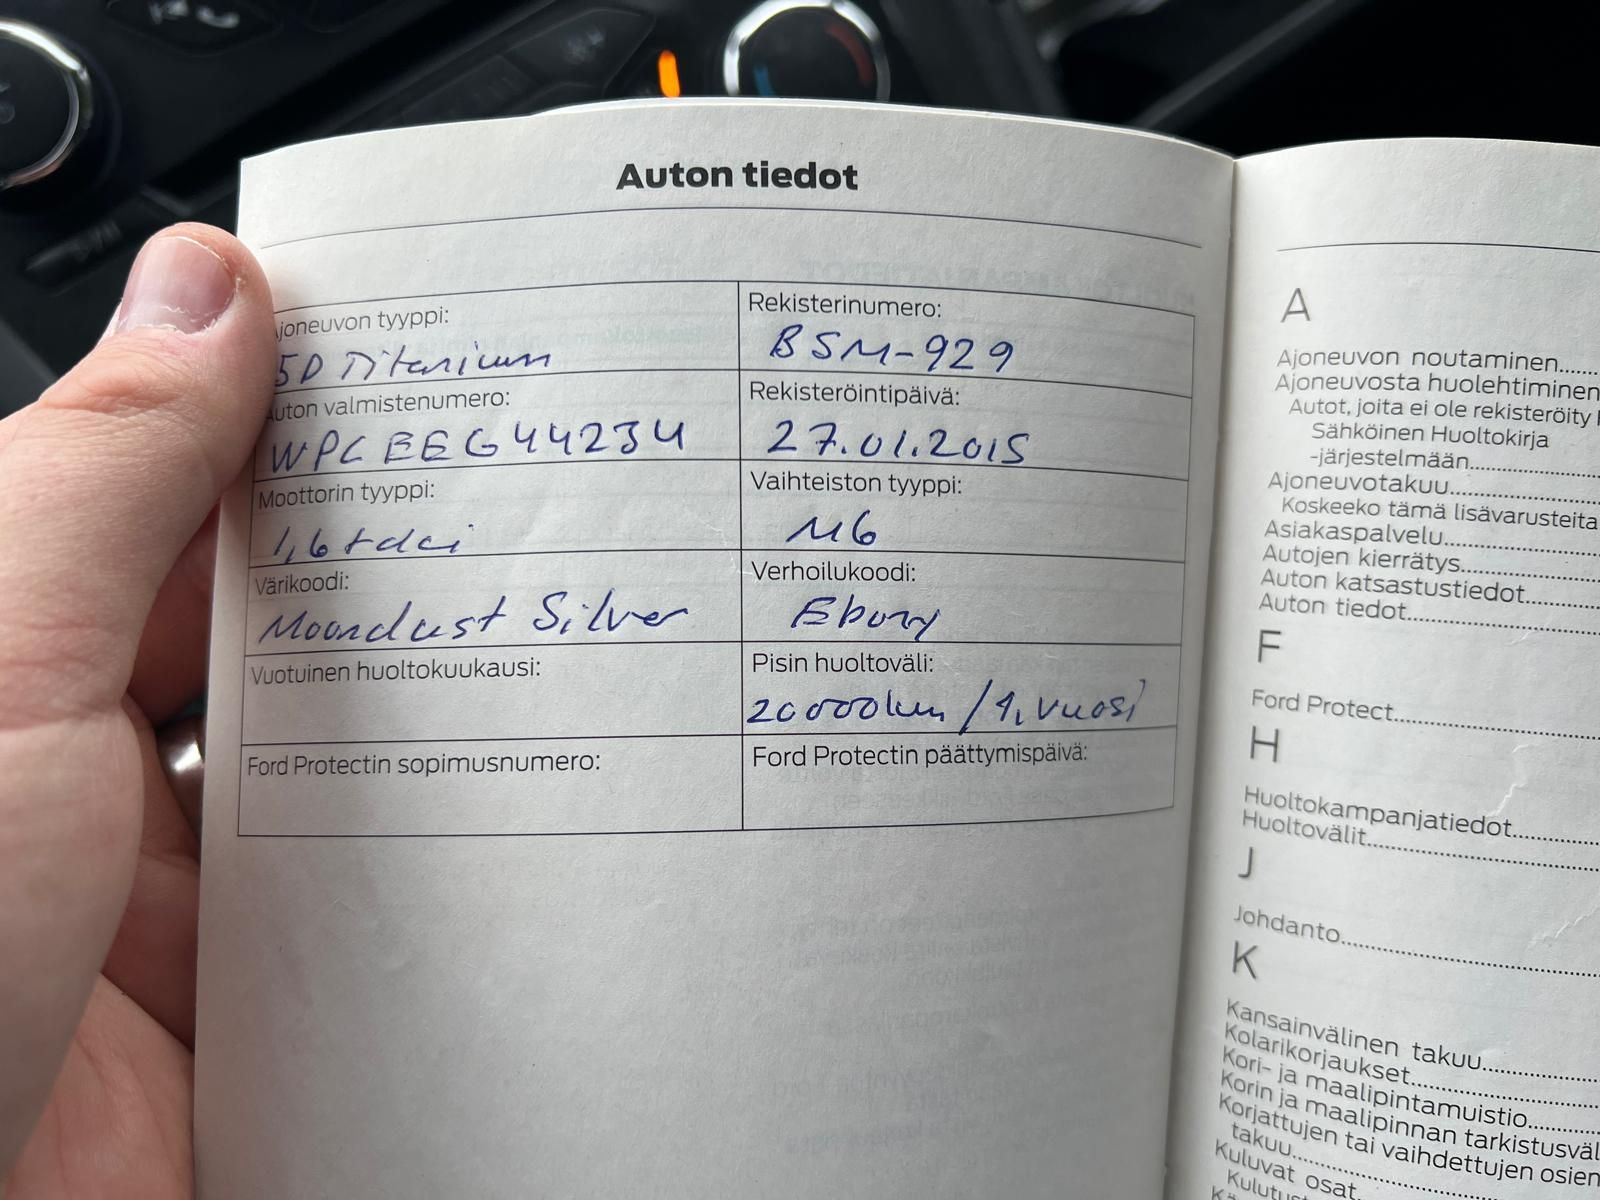 Auton tiedot
Ajoneuvon tyyppi:
5D Titanium
Rekisterinumero:
BSM-929
Auton valmistenumero:
WPCEEG44234
Rekisteröintipäivä:
27.01.2015
Moottorin tyyppi:
1,6 tdci
Vaihteiston tyyppi:
M6
Värikoodi:
Moondust Silver
Verhoilukoodi:
Ebony
Vuotuinen huoltokuukausi:
Pisin huoltoväli:
20 000km / 1. vuosi
Ford Protectin sopimusnumero:
Ford Protectin päättymispäivä:
A
Ajoneuvon noutaminen
Ajoneuvosta huolehtiminen
Autot, joita ei ole rekisteröity
Sähköinen Huoltokirja
-järjestelmään
Ajoneuvotakuu
Koskeeko tämä lisävarusteita
Asiakaspalvelu
Autojen kierrätys
Auton katsastustiedot
Auton tiedot
F
Ford Protect
H
Huoltokampanjatiedot
Huoltovälit
J
Johdanto
K
Kansainvälinen takuu
Kolarikorjaukset
Kori- ja maalipintamuistio
Korin ja maalipinnan tarkistusväl
Korjattujen tai vaihdettujen osien
takuu
Kuluvat osat